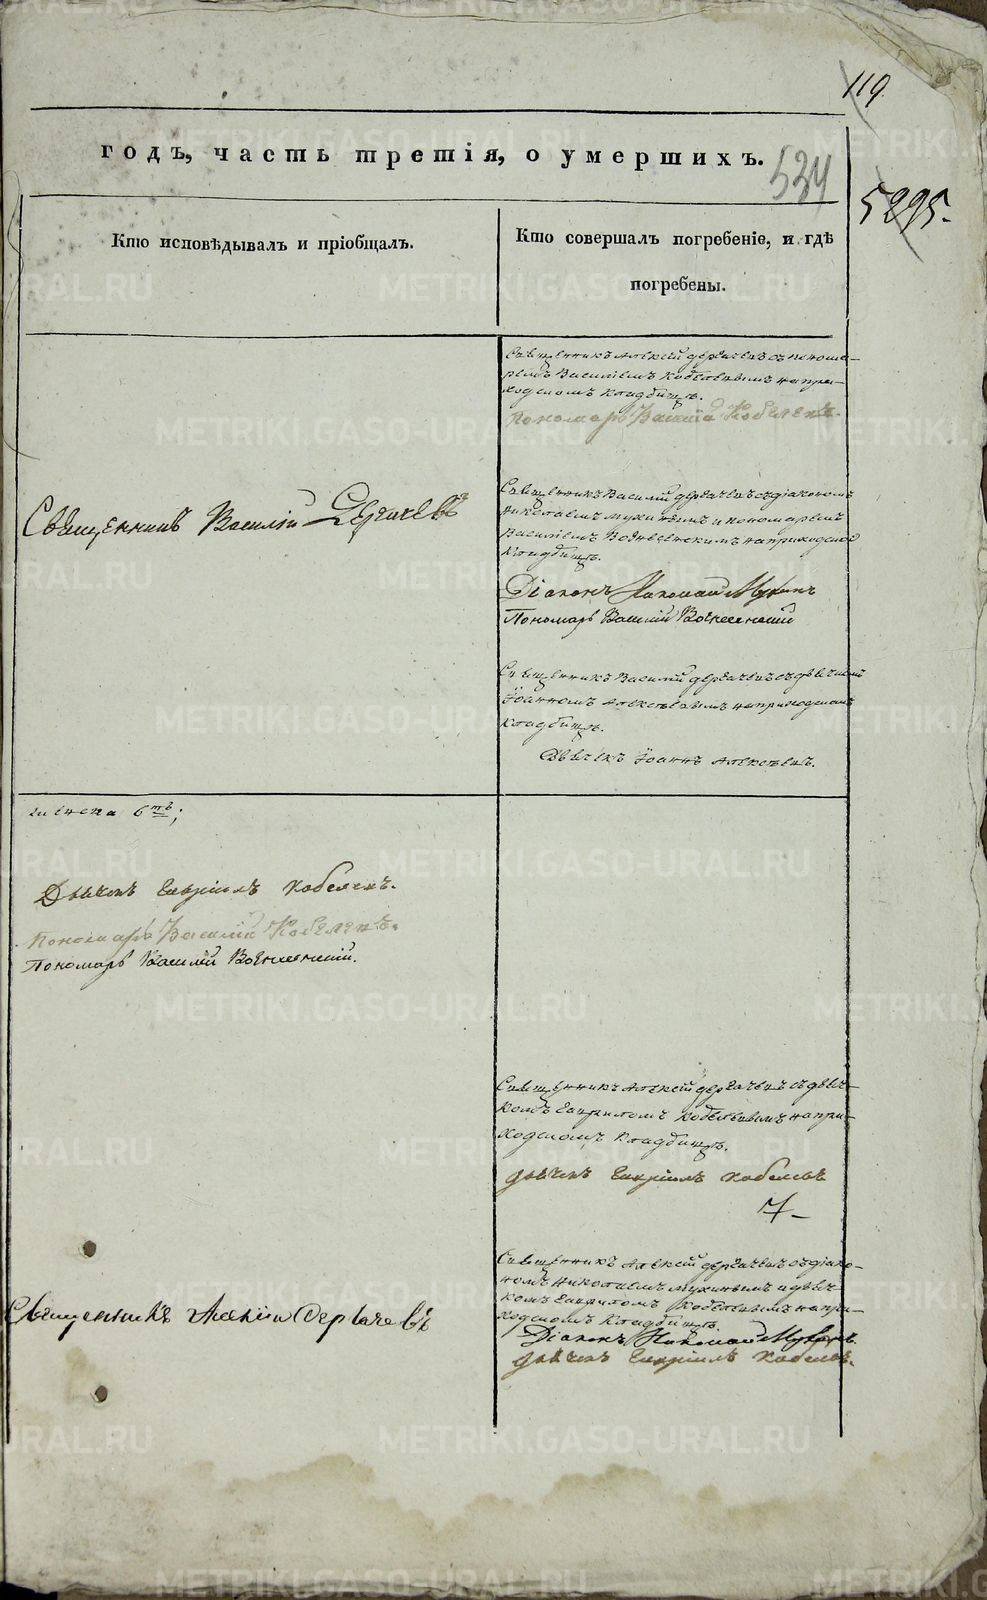 119.
годъ, часть третія, о умершихъ.
534
5295.
Кто исповѣдывалъ и пріобщалъ.
Кто совершалъ погребеніе, и гдѣ
погребены.
Священникъ Алексій Дергачевъ съ понома-
ремъ Василіемъ Кобелевымъ на при-
ходскомъ кладбищѣ.
Пономарь Василій Кобелевъ.
Священникъ Василій Дергачевъ
Священникъ Василій Дергачевъ съ діакономъ
Николаемъ Мухинымъ и пономаремъ
Василіемъ Вознесенскимъ на приходскомъ
кладбищѣ.
Діаконъ Николай Мухинъ
Пономарь Василій Вознесенскій
Священникъ Василій Дергачевъ съ дьячкомъ
Іоанномъ Алексѣевымъ на приходскомъ
кладбищѣ.
Дьячекъ Іоаннъ Алексѣевъ.
6ть;
Дьячекъ Гавріилъ Кобелевъ.
Пономарь Василій Кобелевъ.
Пономарь Василій Вознесенскій.
Священникъ Алексій Дергачевъ съ дьяч-
комъ Гавриломъ Кобелевымъ на при-
ходскомъ кладбищѣ.
Дьячекъ Гавріилъ Кобелевъ
7-
Священникъ Алексій Дергачевъ съ діако-
номъ Николаемъ Мухинымъ и дьяч-
комъ Гавриломъ Кобелевымъ на при-
ходскомъ кладбищѣ.
Священникъ Алексій Дергачевъ
Діаконъ Николай Мухинъ.
Дьячекъ Гавріилъ Кобелевъ.
METRIKI.GASO-URAL.RU